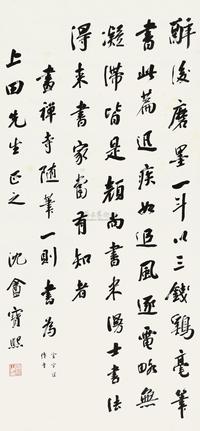 醉後磨墨一斗以三錢鷄毫筆
書此篇迅疾如追風逐電略無
凝滯皆是顏尚書米漫士書法
得来書家當有知者
畫禪寺随筆一則書為
上田先生正之
沈盦寶熙